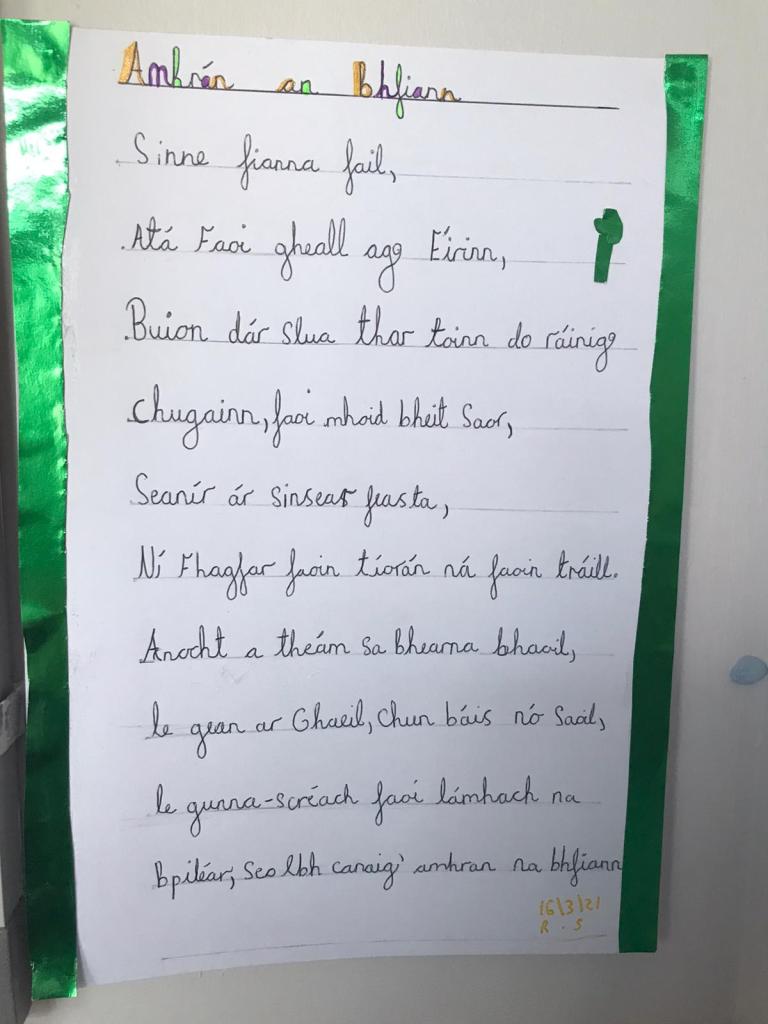 Amhrán an Bhfiann
Sinne fianna fail,
Atá Faoi gheall agg Éirinn,
Buion dár Slua thar toinn do ráinigg
chugainn, faoi mhoid bheit Saor,
Seanír ár sinsear feasta,
Ní Fhagfar faoin tíorán ná faoin tráill.
Anocht a theám sa bhearna bhaoil,
le gean ar Ghaeil, Chun báis nó Saoil,
le gunna-scréach faoi lámhach na
bpiléar, Seo lbh canaigí amhran na bhfiann
16/3/21
R . S